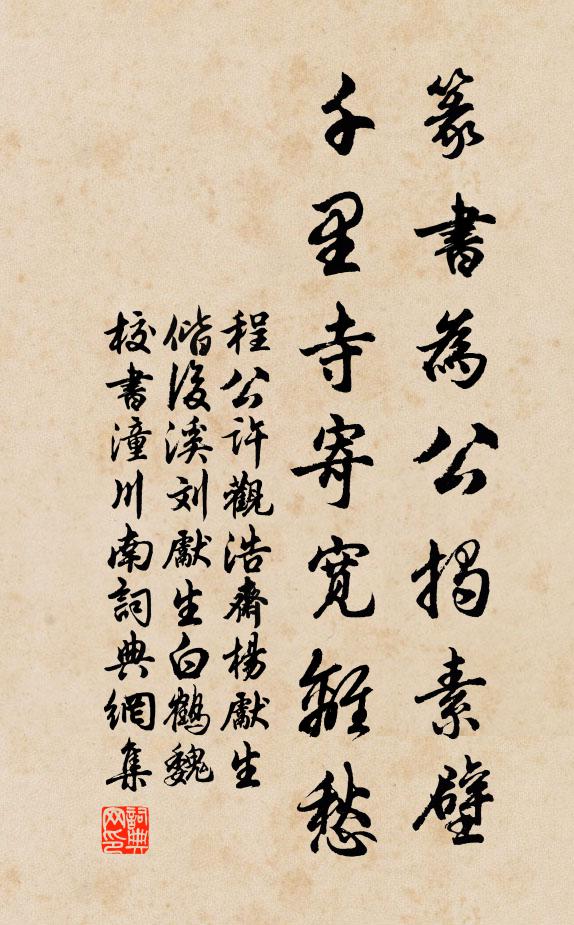 篆書為公揭素壁
千里寺寄寬離愁
程公許觀浩齋楊獻生
偕後溪刘獻生白鶴魏
校書潼川南詞典網集
詞典网印